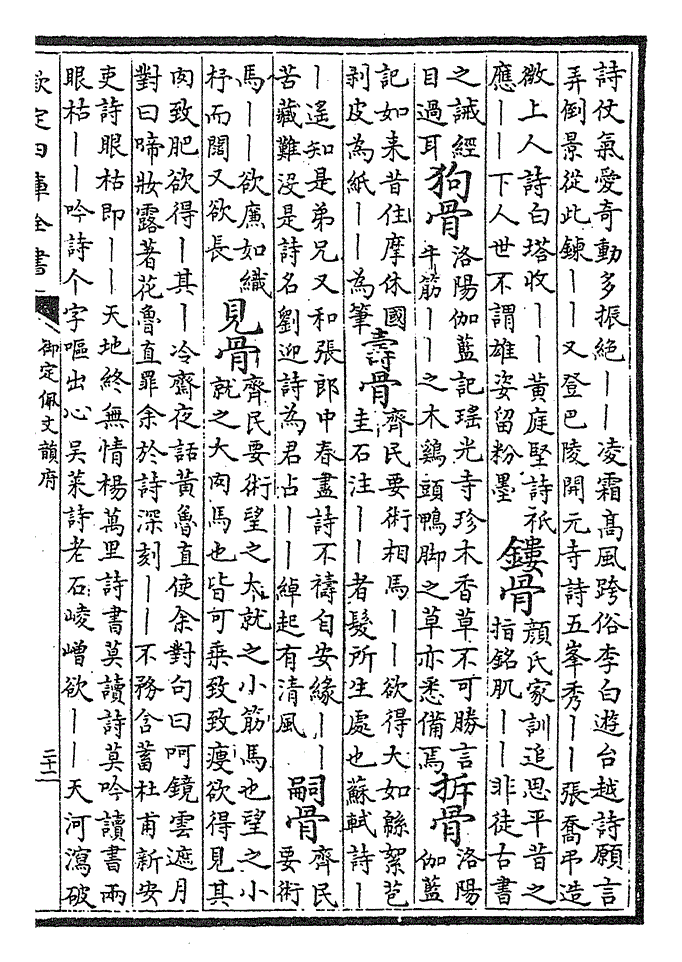 詩仗氣愛奇動多振絶丨丨凌霜髙風跨俗李白遊台越詩願言
弄倒景從此鍊丨丨又登巴陵開元寺詩五峯秀丨丨張喬弔造
微上人詩白塔收丨丨黄庭堅詩祇
應丨丨下人世不謂雄姿留粉墨
鏤骨
顔氏家訓追思平昔之
指銘肌丨丨非徒古書
之誡經
目過耳
狗骨
洛陽伽藍記瑶光寺珍木香草不可勝言
牛筋丨丨之木鷄頭鴨脚之草亦悉備焉
拆骨
洛陽
伽藍
記如来昔住摩休國
剥皮為紙丨丨為筆
壽骨
齊民要術相馬丨丨欲得大如緜絮苞
圭石注丨丨者髮所生處也蘇軾詩丨
丨遥知是弟兄又和張郎中春晝詩不禱自安緣丨丨
苦藏難没是詩名劉迎詩為君占丨丨綽起有清風
嗣骨
齊民
要術
馬丨丨欲亷如織
杼而闊又欲長
見骨
齊民要術望之大就之小筋馬也望之小
就之大肉馬也皆可乗致致瘦欲得見其
肉致肥欲得丨其丨冷齋夜話黄魯直使余對句曰呵鏡雲遮月
對曰啼妝露著花魯直罪余於詩深刻丨丨不務含蓄杜甫新安
吏詩眼枯即丨丨天地終無情楊萬里詩書莫讀詩莫吟讀書兩
眼枯丨丨吟詩个字嘔出心吴莱詩老石崚嶒欲丨丨天河瀉破
欽定四庫全書
御定佩文韻府
二十二